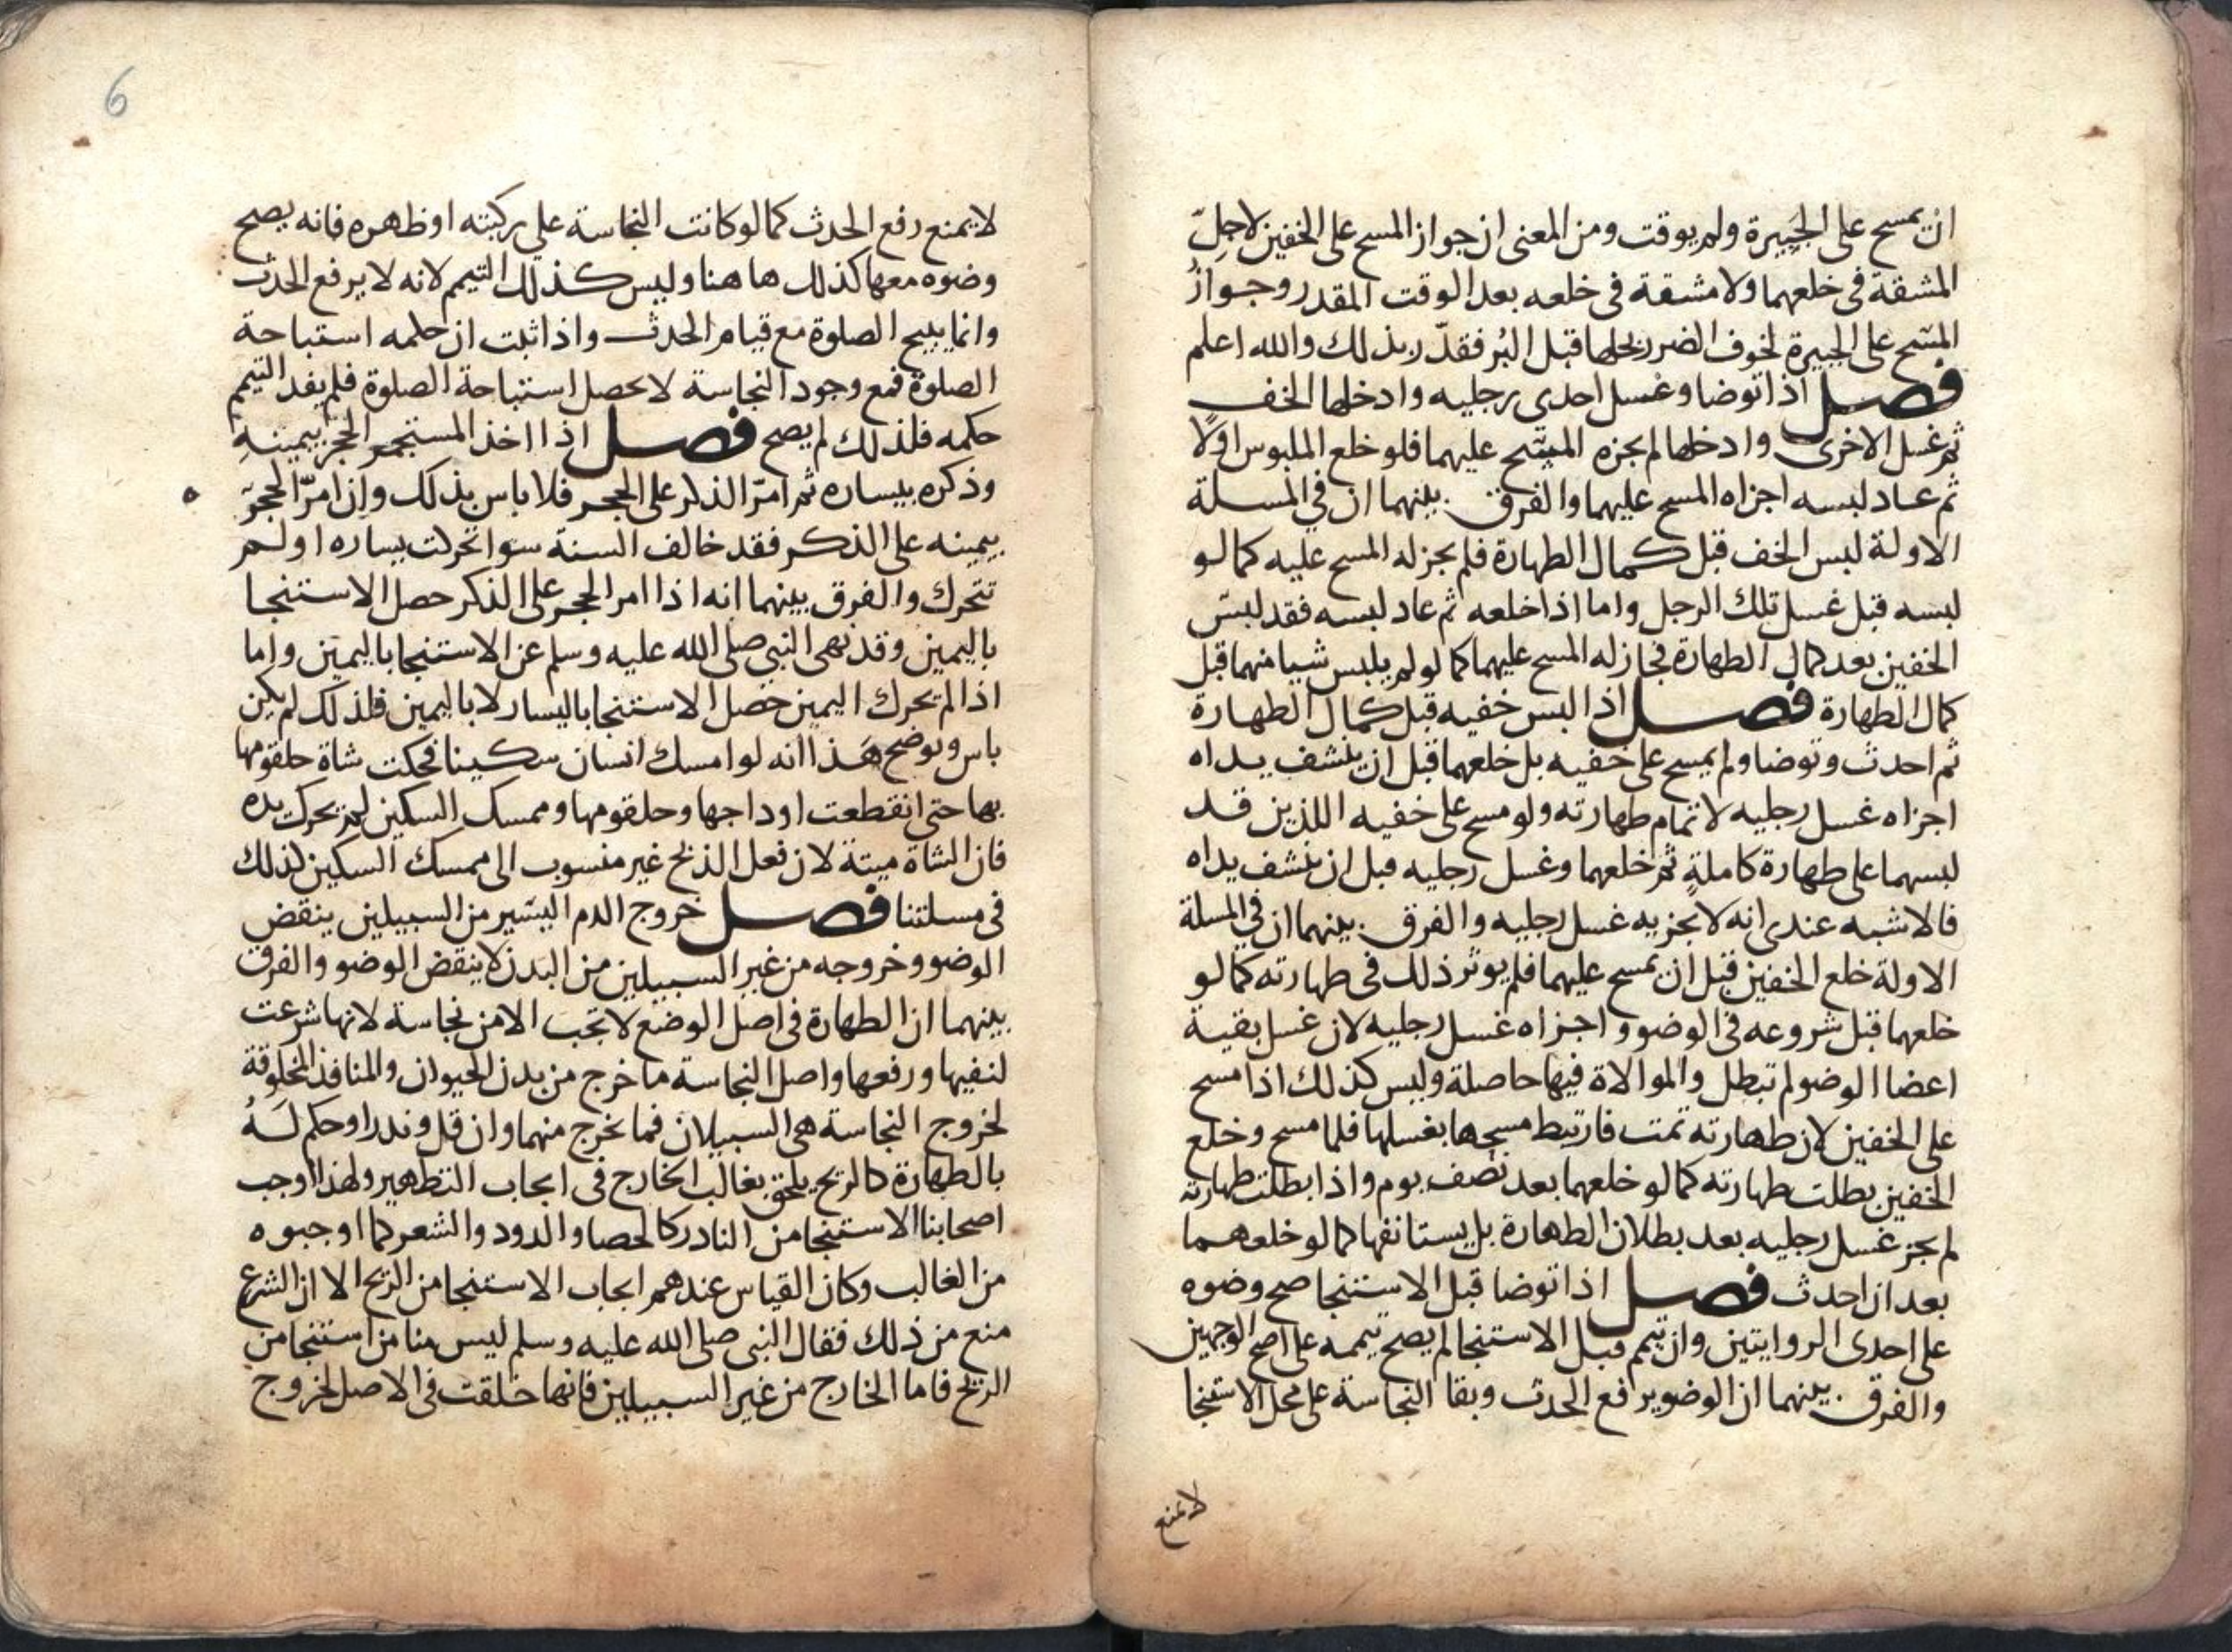 ان يمسح على الجبيرة ولم يوقت ومن المعنى ان جواز المسح على الخفين لاجل
المشقة في خلعهما ولا مشقة في خلعه بعد الوقت المقدر وجواز
المسح على الجبيرة لخوف الضرر بحلها قبل البر فقدر بذلك والله اعلم
فصل اذا توضا وغسل احدى رجليه وادخلها الخف
ثم غسل الاخرى وادخلها لم يجزه المسح عليهما فلو خلع الملبوس اولا
ثم عاد لبسه اجزاه المسح عليهما والفرق بينهما ان في المسلة
الاولة لبس الخف قبل كمال الطهارة فلم يجز له المسح عليه كما لو
لبسه قبل غسل تلك الرجل واما اذا خلعه ثم عاد لبسه فقد لبس
الخفين بعد كمال الطهارة فجاز له المسح عليهما كما لو لم يلبس شيا منهما قبل
كمال الطهارة فصل اذا لبس خفيه قبل كمال الطهارة
ثم احدث وتوضا ولم يمسح على خفيه بل خلعهما قبل ان ينشف يداه
اجزاه غسل رجليه لاتمام طهارته ولو مسح على خفيه اللذين قد
لبسهما على طهارة كاملة ثم خلعهما وغسل رجليه قبل ان ينشف يداه
فالاشبه عندى انه لا يجزيه غسل رجليه والفرق بينهما ان في المسلة
الاولة خلع الخفين قبل ان يمسح عليهما فلم يوثر ذلك في طهارته كما لو
خلعهما قبل شروعه في الوضو واجزاه غسل رجليه لان غسل بقية
اعضا الوضو لم تبطل والموالاة فيها حاصلة وليس كذلك اذا مسح
على الخفين لان طهارته تمت فارتبط مسحها بغسلها فلما مسح وخلع
الخفين بطلت طهارته كما لو خلعهما بعد نصف يوم واذا بطلت طهارته
لم يجز غسل رجليه بعد بطلان الطهارة بل يستانفها كما لو خلعهما
بعد ان احدث فصل اذا توضا قبل الاستنجا صح وضوه
على احدى الروايتين وان تيمم قبل الاستنجا لم يصح تيممه على اصح الوجهين
والفرق بينهما ان الوضو يرافع الحدث وبقا النجاسة على محل الاستنجا
لا يمنع
6
لا يمنع رفع الحدث كما لو كانت النجاسة على ركبته او ظهره فانه يصح
وضوه معها كذلك ها هنا وليس كذلك التيمم لانه لا يرفع الحدث
وانما يبيح الصلوة مع قيام الحدث واذا ثبت ان حكمه استباحة
الصلوة فمع وجود النجاسة لا يحصل استباحة الصلوة فلم يفد التيمم
حكمه فلذلك لم يصح فصل اذا اخذ المستجمر الحجر بيمينه
وذكره بيساره ثم امر الذكر على الحجر فلا باس بذلك وان امر الحجر
بيمينه على الذكر فقد خالف السنة سوا تحركت يساره او لم
تتحرك والفرق بينهما انه اذا امر الحجر على الذكر حصل الاستنجا
باليمين وقد نهى النبي صلى الله عليه وسلم عن الاستنجا باليمين واما
اذا لم يحرك اليمين حصل الاستنجا باليسار لا باليمين فلذلك لم يكن
باس ويوضح هذا انه لو امسك انسان سكينا فحكت شاة حلقومها
بها حتى انقطعت اوداجها وحلقومها وممسك السكين لم يحرك يده
فان الشاة ميتة لان فعل الذبح غير منسوب الى ممسك السكين كذلك
في مسلتنا فصل خروج الدم اليسير من السبيلين ينقض
الوضو وخروجه من غير السبيلين من البدن لا ينقض الوضو والفرق
بينهما ان الطهارة في اصل الوضع لا تجب الا من نجاسة لانها شرعت
لنفيها ورفعها واصل النجاسة ما خرج من بدن الحيوان والمنافذ المخلوقة
لخروج النجاسة هي السبيلان فما يخرج منهما وان قل وندر او حكم له
بالطهارة كالريح يلحق بغالب الخارج في ايجاب التطهير ولهذا اوجب
اصحابنا الاستنجا من النادر كالحصا والدود والشعر كما اوجبوه
من الغالب وكان القياس عندهم ايجاب الاستنجا من الريح الا ان الشرع
منع من ذلك فقال النبي صلى الله عليه وسلم ليس منا من استنجا من
الريح فاما الخارج من غير السبيلين فانها خلقت في الاصل لخروج